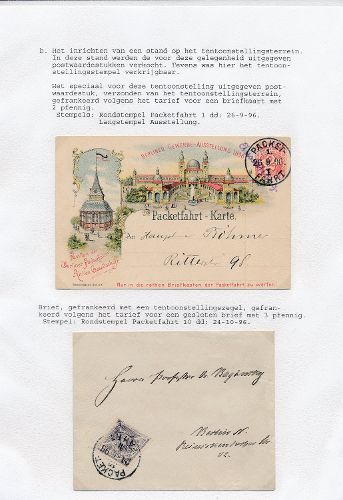 b. Het inrichten van een stand op het tentoonstellingsterrein.
In deze stand werden de voor deze gelegenheid uitgegeven
postwaardestukken verkocht. Tevens was hier het tentoon-
stellingsstempel verkrijgbaar.
Het speciaal voor deze tentoonstelling uitgegeven post-
waardestuk, verzonden van het tentoonstellingsterrein,
gefrankeerd volgens het tarief voor een briefkaart met
2 pfennig.
Stempels: Rondstempel Packetfahrt 1 dd: 26-9-96.
Langstempel Ausstellung.
BERLINER GEWERBE-AUSSTELLUNG 1896
PACKET-
1.
26.9.96
FAHRT
Packetfahrt-Karte.
Böhme
Ritterstr. 98
Pavillon
Berliner Packetf.
Actien Gesellschaft
Nur in die rothen Briefkasten der Packetfahrt zu werfen.
Brief, gefrankeerd met een tentoonstellingzegel, gefran-
keerd volgens het tarief voor een gesloten brief met 3 pfennig.
Stempel: Rondstempel Packetfahrt 10 dd: 24-10-96.
Herrn Professor
Berlin N.
PACKET